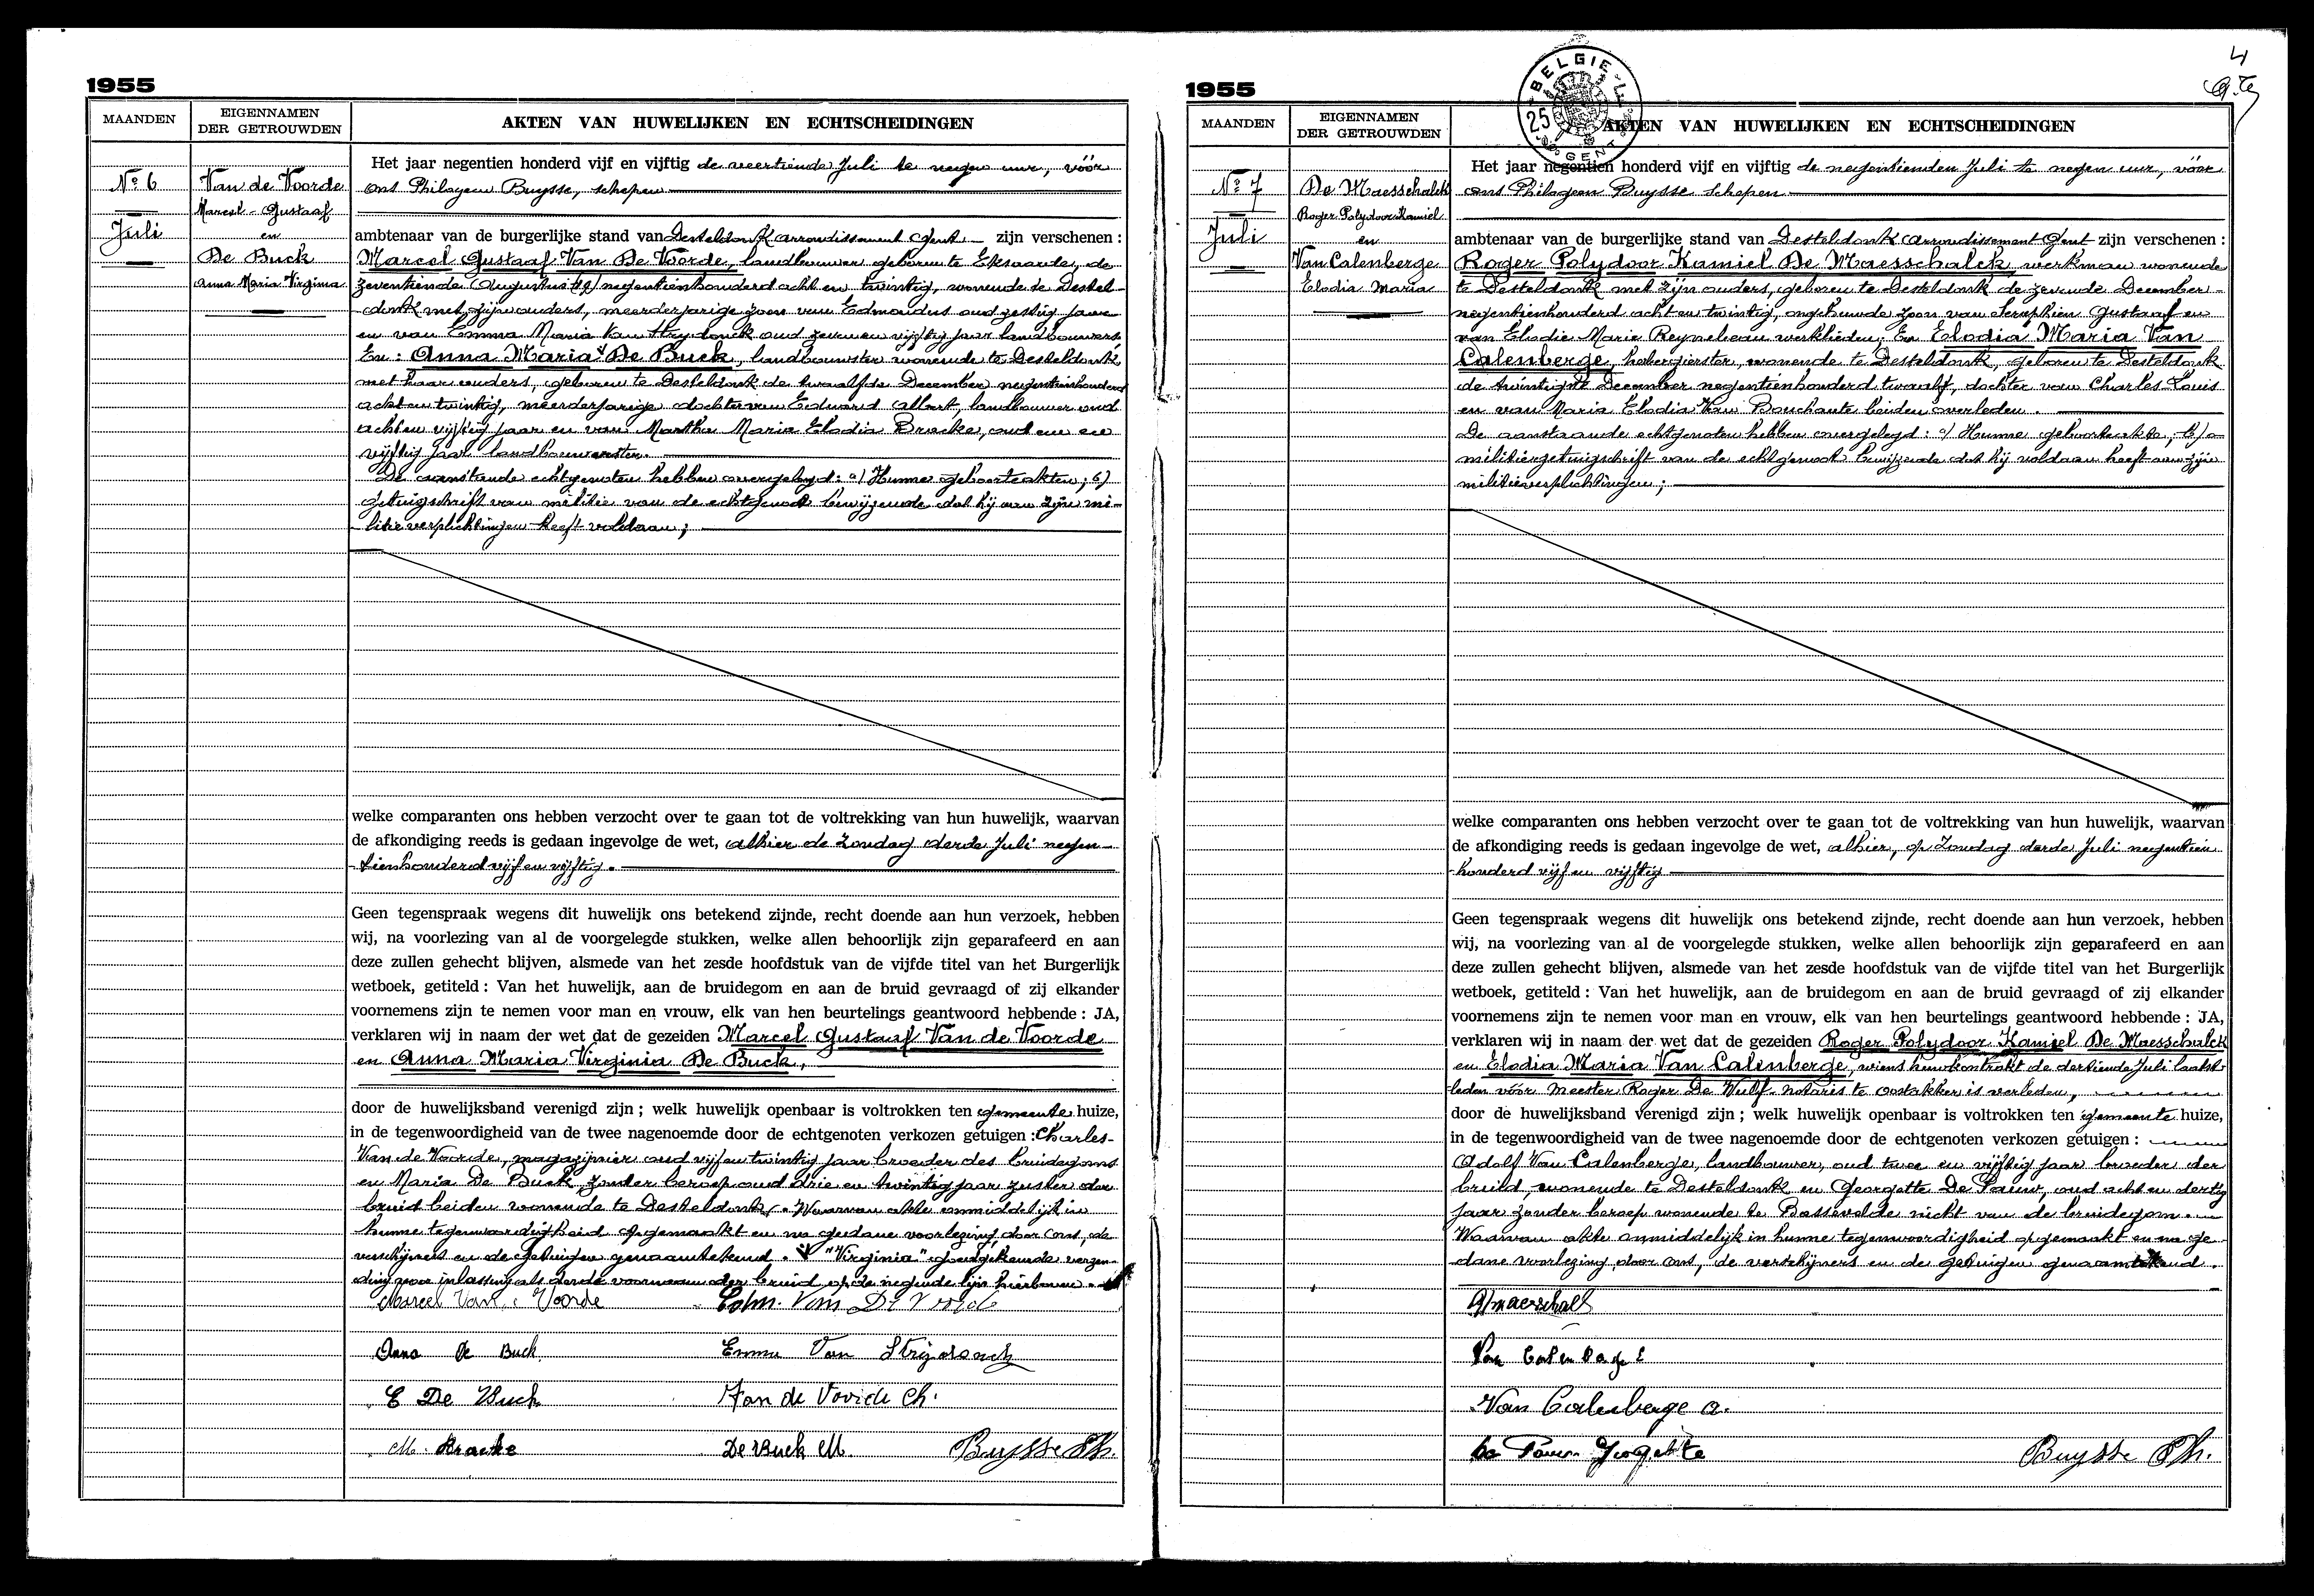 1955
MAANDEN
EIGENNAMEN
DER GETROUWDEN
AKTEN VAN HUWELIJKEN EN ECHTSCHEIDINGEN
N° 6
Juli
Van de Voorde
Marcel-Gustaaf
en
De Buck
Anna Maria Virginia
Het jaar negentien honderd vijf en vijftig de veertiende Juli te negen uur, vóór
ons Philogeen Buysse, schepen
ambtenaar van de burgerlijke stand van Desteldonk arrondissement Gent zijn verschenen :
Marcel Gustaaf Van De Voorde, landbouwer geboren te Eksaarde, de
zeventiende Augustus negentienhonderd acht en twintig, wonende te Destel-
donk met zijn ouders, meerderjarige zoon van Edmondus oud zestig jaar
en van Emma Maria Van Strydonck oud zeven en vijftig jaar landbouwers
En : Anna Maria De Buck, landbouwster wonende te Desteldonk
met haar ouders, geboren te Desteldonk de twaalfde December negentienhonderd
acht en twintig, meerderjarige dochter van Edward Albert, landbouwer oud
acht en vijftig jaar en van Martha Maria Elodia Bracke, oud een en
vijftig jaar landbouwersten.
De aanstaande echtgenoten hebben overgelegd : a) Hunne geboorteakten ; b)
Getuigschrift van militie van de echtgenoot bewijzende dat hij aan zijn mi-
litieverplichtingen heeft voldaan ;
welke comparanten ons hebben verzocht over te gaan tot de voltrekking van hun huwelijk, waarvan
de afkondiging reeds is gedaan ingevolge de wet, alhier de Zondag derde Juli negen-
tienhonderd vijf en vijftig.
Geen tegenspraak wegens dit huwelijk ons betekend zijnde, recht doende aan hun verzoek, hebben
wij, na voorlezing van al de voorgelegde stukken, welke allen behoorlijk zijn geparafeerd en aan
deze zullen gehecht blijven, alsmede van het zesde hoofdstuk van de vijfde titel van het Burgerlijk
wetboek, getiteld : Van het huwelijk, aan de bruidegom en aan de bruid gevraagd of zij elkander
voornemens zijn te nemen voor man en vrouw, elk van hen beurtelings geantwoord hebbende : JA,
verklaren wij in naam der wet dat de gezeiden Marcel Gustaaf Van de Voorde
en Anna Maria Virginia De Buck,
door de huwelijksband verenigd zijn ; welk huwelijk openbaar is voltrokken ten gemeente huize,
in de tegenwoordigheid van de twee nagenoemde door de echtgenoten verkozen getuigen : Charles-
Van de Voorde, magazijnier oud vijf en twintig jaar broeder des bruidegoms
en Maria De Buck zonder beroep oud drie en twintig jaar zuster der
bruid beiden wonende te Desteldonk. Waarvan akte onmiddelijk in
hunne tegenwoordigheid opgemaakt en na gedane voorlezing, door ons, de
verschijners en de getuigen genaamtekend. "Virginia" goedgekeurde verzen-
ding voor inlassing als derde voornaam der bruid op de negende lijn hierboven.
Marcel Van Voorde
Edm. Van De Voorde
Anna De Buck
Emma Van Strijdonck
E De Buck
Van de Voorde Ch.
M. Bracke
De Buck M.
Buysse Ph.
4
1955
BELGIE
25
GENT
MAANDEN
EIGENNAMEN
DER GETROUWDEN
AKTEN VAN HUWELIJKEN EN ECHTSCHEIDINGEN
N° 7
Juli
De Maesschalck
Roger Polydoor Kamiel
en
Van Calenberge
Elodia Maria
Het jaar negentien honderd vijf en vijftig de negentienden Juli te negen uur, vóór
ons Philogeen Buysse schepen
ambtenaar van de burgerlijke stand van Desteldonk arrondissement Gent zijn verschenen :
Roger Polydoor Kamiel De Maesschalck werkman wonende
te Desteldonk met zijn ouders, geboren te Desteldonk de zevende December
negentienhonderd acht en twintig, ongehuwde zoon van Seraphien Gustaaf en
van Elodie Marie Reyneveau werklieden, En Elodia Maria Van
Calenberge, herbergierster, wonende te Desteldonk, geboren te Desteldonk
de twintigste December negentienhonderd twaalf, dochter van Charles Louis
en van Maria Elodia Van Bouchaute beiden overleden.
De aanstaande echtgenoten hebben overgelegd : a) Hunne geboorteakte, b)
militiegetuigschrift van de echtgenoot bewijzende dat hij voldaan heeft aan zijn
militieverplichtingen ;
welke comparanten ons hebben verzocht over te gaan tot de voltrekking van hun huwelijk, waarvan
de afkondiging reeds is gedaan ingevolge de wet, alhier, op Zondag derde Juli negentien
honderd vijf en vijftig
Geen tegenspraak wegens dit huwelijk ons betekend zijnde, recht doende aan hun verzoek, hebben
wij, na voorlezing van al de voorgelegde stukken, welke allen behoorlijk zijn geparafeerd en aan
deze zullen gehecht blijven, alsmede van het zesde hoofdstuk van de vijfde titel van het Burgerlijk
wetboek, getiteld : Van het huwelijk, aan de bruidegom en aan de bruid gevraagd of zij elkander
voornemens zijn te nemen voor man en vrouw, elk van hen beurtelings geantwoord hebbende : JA,
verklaren wij in naam der wet dat de gezeiden Roger Polydoor Kamiel De Maesschalck
en Elodia Maria Van Calenberge, wiens huwkontrakt de dertiende Juli laatst-
leden vóór meester Roger De Wulf notaris te Oostakker is verleden,
door de huwelijksband verenigd zijn ; welk huwelijk openbaar is voltrokken ten gemeente huize,
in de tegenwoordigheid van de twee nagenoemde door de echtgenoten verkozen getuigen :
Adolf Van Calenberge, landbouwer, oud twee en vijftig jaar broeder der
bruid, wonende te Desteldonk en Georgette De Pauw, oud acht en dertig
jaar zonder beroep wonende te Bassevelde nicht van de bruidegom.
Waarvan akte onmiddelijk in hunne tegenwoordigheid opgemaakt en na ge
dane voorlezing door ons, de verschijners en de getuigen genaamtekend.
Van Calenberge E
Van Calenberge A.
De Pauw Georgette
Buysse Ph.